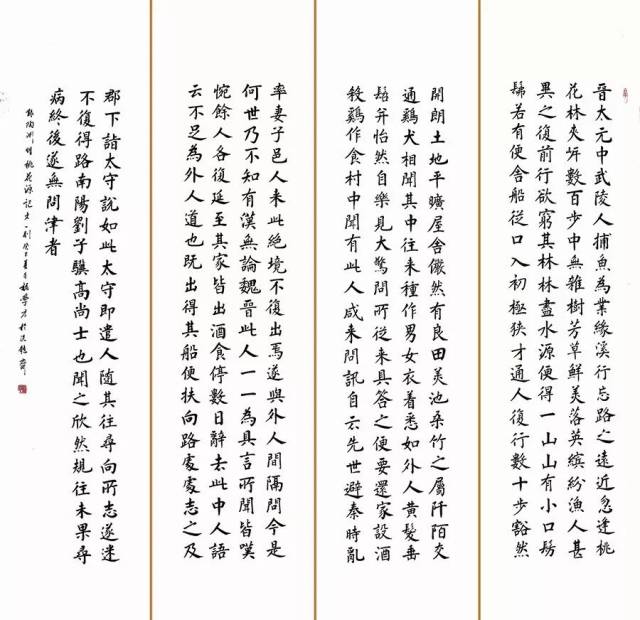 晉太元中武陵人捕魚為業緣溪行忘路之遠近忽逢桃
花林夾岸數百步中無雜樹芳草鮮美落英繽紛漁人甚
異之復前行欲窮其林林盡水源便得一山山有小口髣
髴若有便舍船從口入初極狹才通人復行數十步豁然
開朗土地平曠屋舍儼然有良田美池桑竹之屬阡陌交
通鷄犬相聞其中往来種作男女衣着悉如外人黄髮垂
髫并怡然自樂見大驚問所從来具答之便要還家設酒
殺鷄作食村中聞有此人咸来問訊自云先世避秦時亂
率妻子邑人来此絶境不復出焉遂與外人間隔問今是
何世乃不知有漢無論魏晉此人一一為具言所聞皆嘆
惋餘人各復延至其家皆出酒食停數日辭去此中人語
云不足為外人道也既出得其船便扶向路處處志之及
郡下詣太守說如此太守即遣人隨其往尋向所志遂迷
不復得路南陽劉子驥高尚士也聞之欣然規往未果尋
病終後遂無問津者
録陶渊明桃花源記